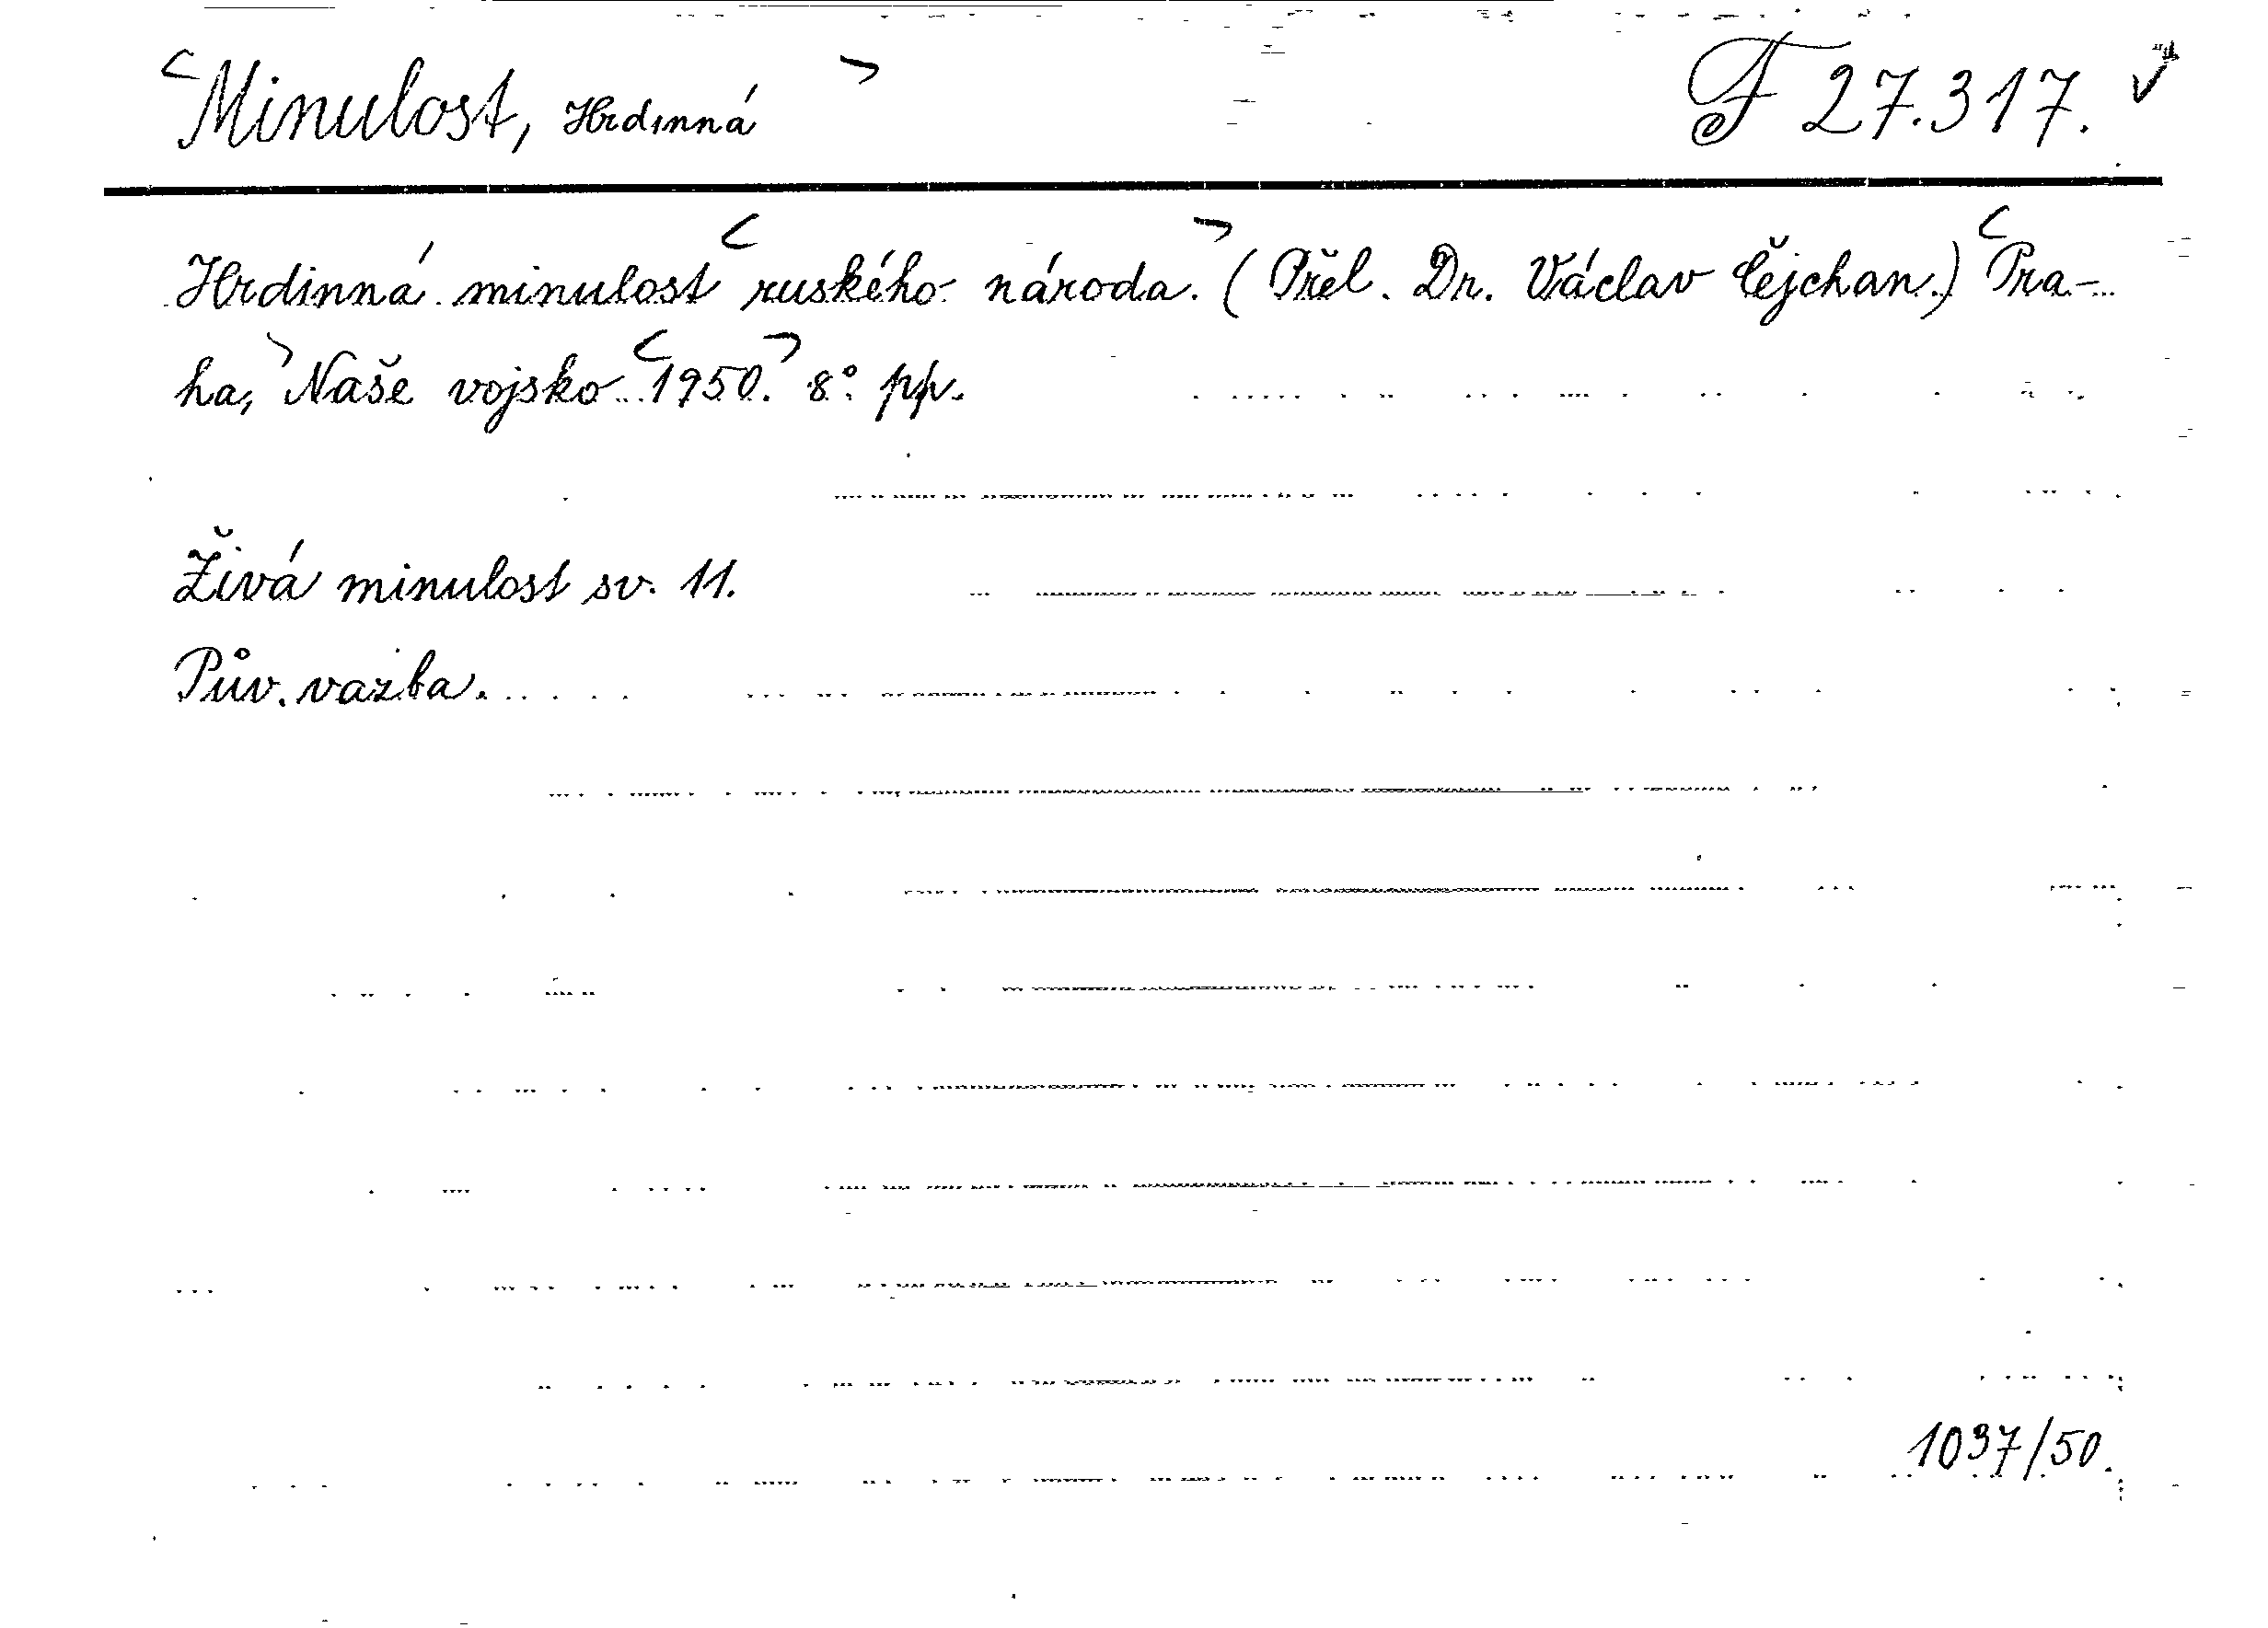 Minulost, Hrdinná F 27.317.
Hrdinná minulost ruského národa. (Přel. Dr. Václav Čejchan.) Pra-
ha, Naše vojsko 1950. 8°. pp.
Živá minulost sv. 11.
Pův. vazba.
1037/50.